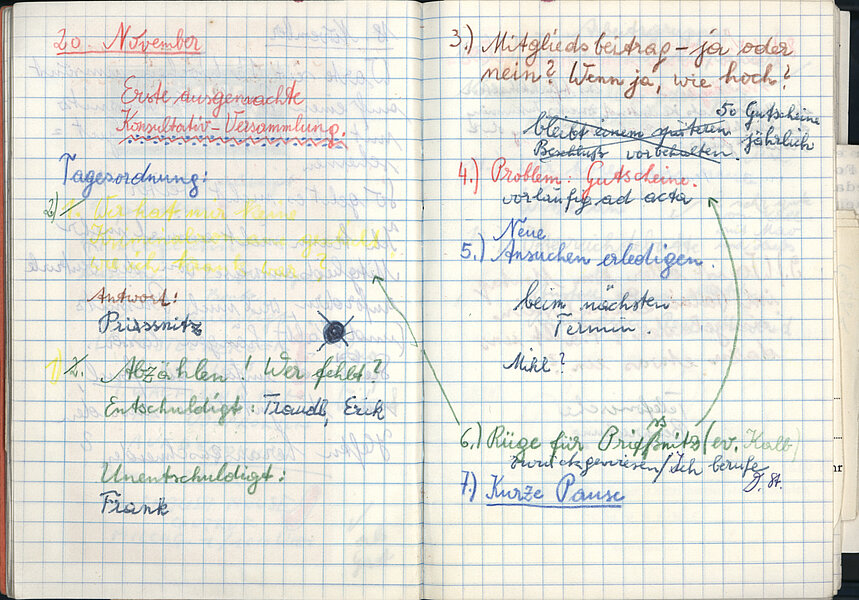 20. November
Erste ausgemachte
Konsultativ-Versammlung.
Tagesordnung:
2) 1. Wer hat nur keine
?
Antwort:
Priessnitz
1) 2. Abzählen! Wer fehlt?
Entschuldigt: Traudl, Erik
Unentschuldigt:
Frank
3.) Mitgliedsbeitrag – ja oder
nein? Wenn ja, wie hoch?
50 Gutscheine
jährlich
bleibt einem späteren
Beschluß vorbehalten.
4.) Problem: Gutscheine.
vorläufig ad acta
Neue
5.) Ansuchen erledigen.
beim nächsten
Termin.
Mikl?
6.) Rüge für Prissnitz (ev. Kalb)
zurückgewiesen/Ich berufe
F. St.
7.) Kurze Pause